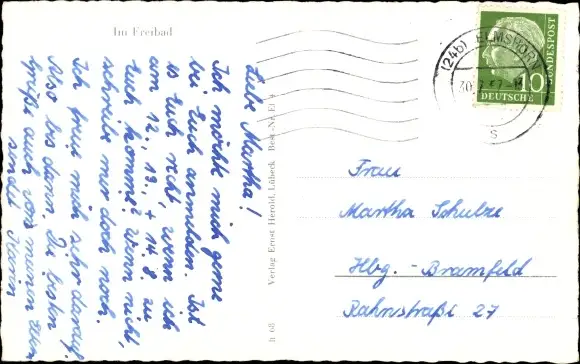 Im Freibad
Liebe Martha!
Ich möchte mich gerne
bei Euch anmelden. Ist
es Euch recht, wenn ich
am 12., 13. + 14. 8. zu
Euch komme? Wenn nicht,
schreibe mir doch noch.
Ich freue mich sehr darauf.
Also bis dann. Die besten
Grüße auch von meinen Eltern
sendet Karin
Verlag Ernst Herold, Lübeck Best.-Nr. El
h 68
(24b) ELMSHORN
DEUTSCHE
BUNDESPOST
10
Frau
Martha Schulze
Hbg. - Bramfeld
Rahnstraße 27